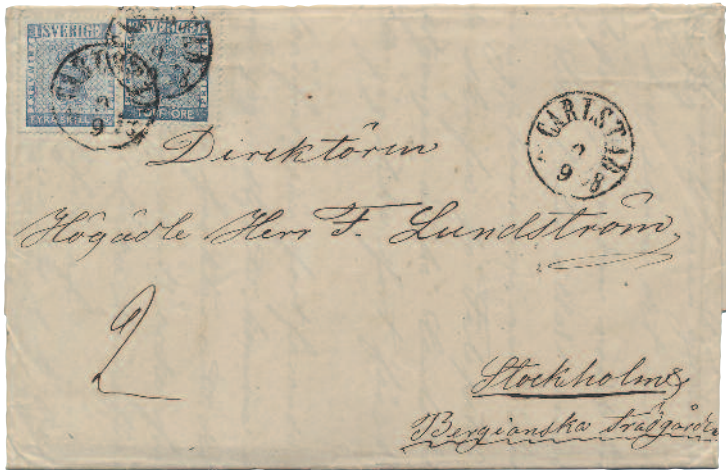 SVERIGE SVERIGE
FYRA SKILL. TOLF ÖRE
CARLSTAD
2
9
Direktören
Högädle Herr F. Lundström,
2
Stockholm,
Bergianska Trädgården